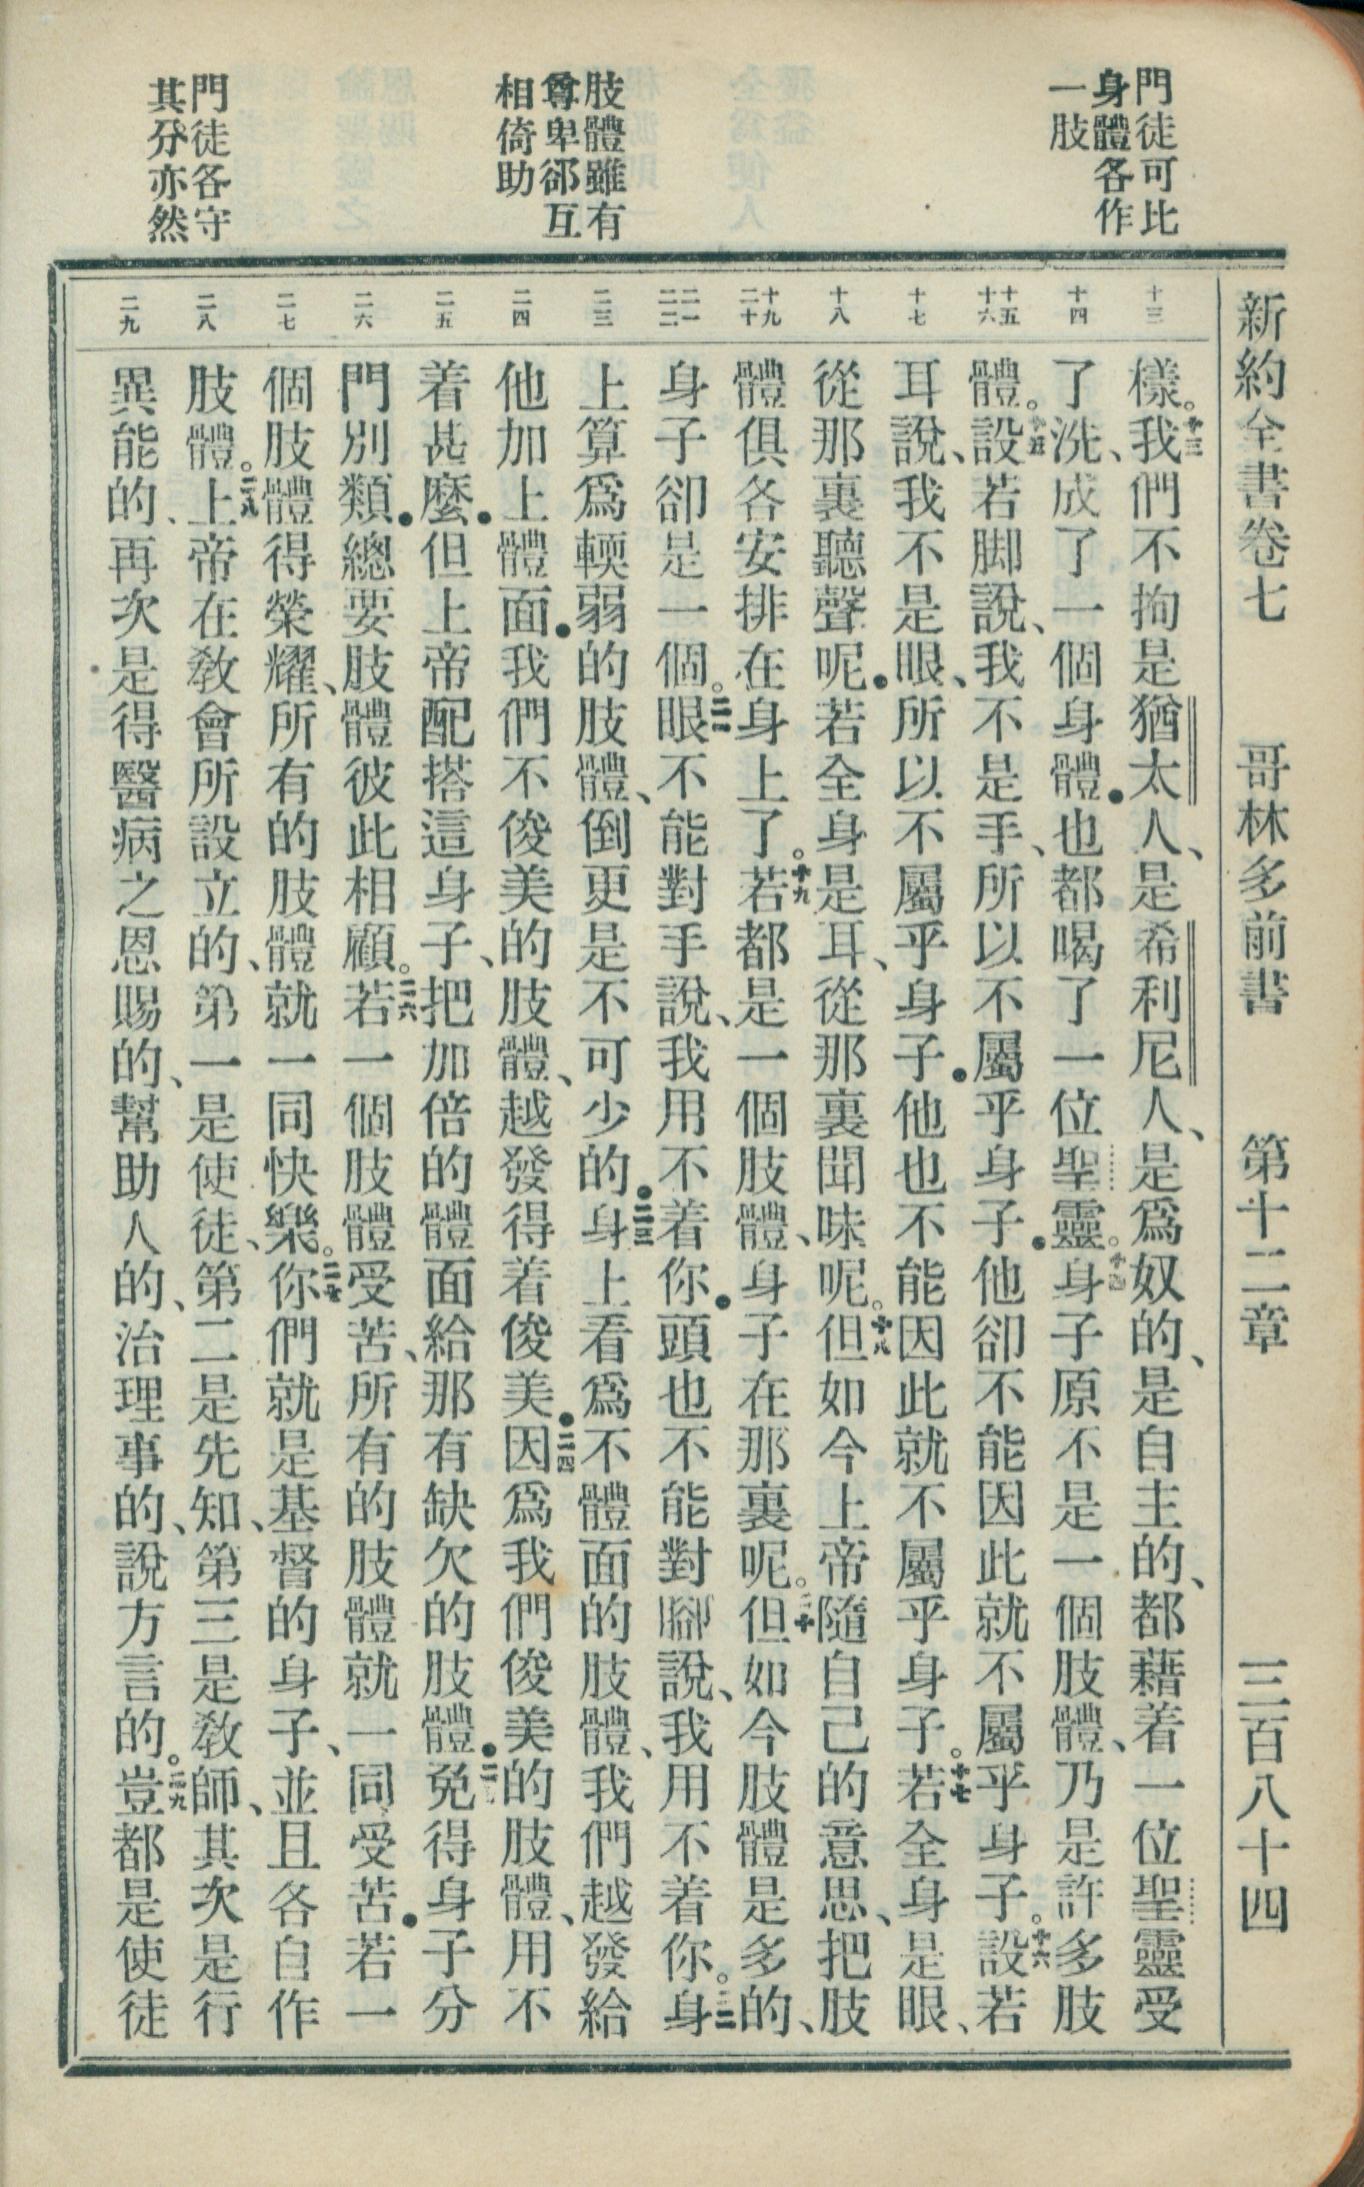 門徒可比
身體各作
一肢
肢體雖有
尊卑郤互
相倚助
門徒各守
其分亦然
新約全書卷七 哥林多前書 第十二章 三百八十四
十三
十四
十五
十六
十七
十八
十九
二十
二一
二二
二三
二四
二五
二六
二七
二八
二九
樣。十三我們不拘是猶太人、是希利尼人、是爲奴的、是自主的、都藉着一位聖靈受
了洗、成了一個身體●也都喝了一位聖靈。十四身子原不是一個肢體、乃是許多肢
體。十五設若脚說、我不是手、所以不屬乎身子●他卻不能因此就不屬乎身子。十六設若
耳說、我不是眼、所以不屬乎身子●他也不能因此就不屬乎身子。十七若全身是眼、
從那裏聽聲呢●若全身是耳、從那裏聞味呢。十八但如今上帝隨自己的意思、把肢
體俱各安排在身上了。十九若都是一個肢體、身子在那裏呢。二十但如今肢體是多的、
身子卻是一個。二一眼不能對手說、我用不着你●頭也不能對腳說、我用不着你。二二身
上算爲輭弱的肢體、倒更是不可少的●二三身上看爲不體面的肢體、我們越發給
他加上體面●我們不俊美的肢體、越發得着俊美●二四因爲我們俊美的肢體、用不
着甚麼●但上帝配搭這身子、把加倍的體面給那有缺欠的肢體●二五免得身子分
門別類●總要肢體彼此相顧。二六若一個肢體受苦、所有的肢體就一同受苦●若一
個肢體得榮耀、所有的肢體就一同快樂。二七你們就是基督的身子、並且各自作
肢體。二八上帝在敎會所設立的、第一是使徒、第二是先知、第三是敎師、其次是行
異能的、再次是得醫病之恩賜的、幫助人的、治理事的、說方言的。二九豈都是使徒